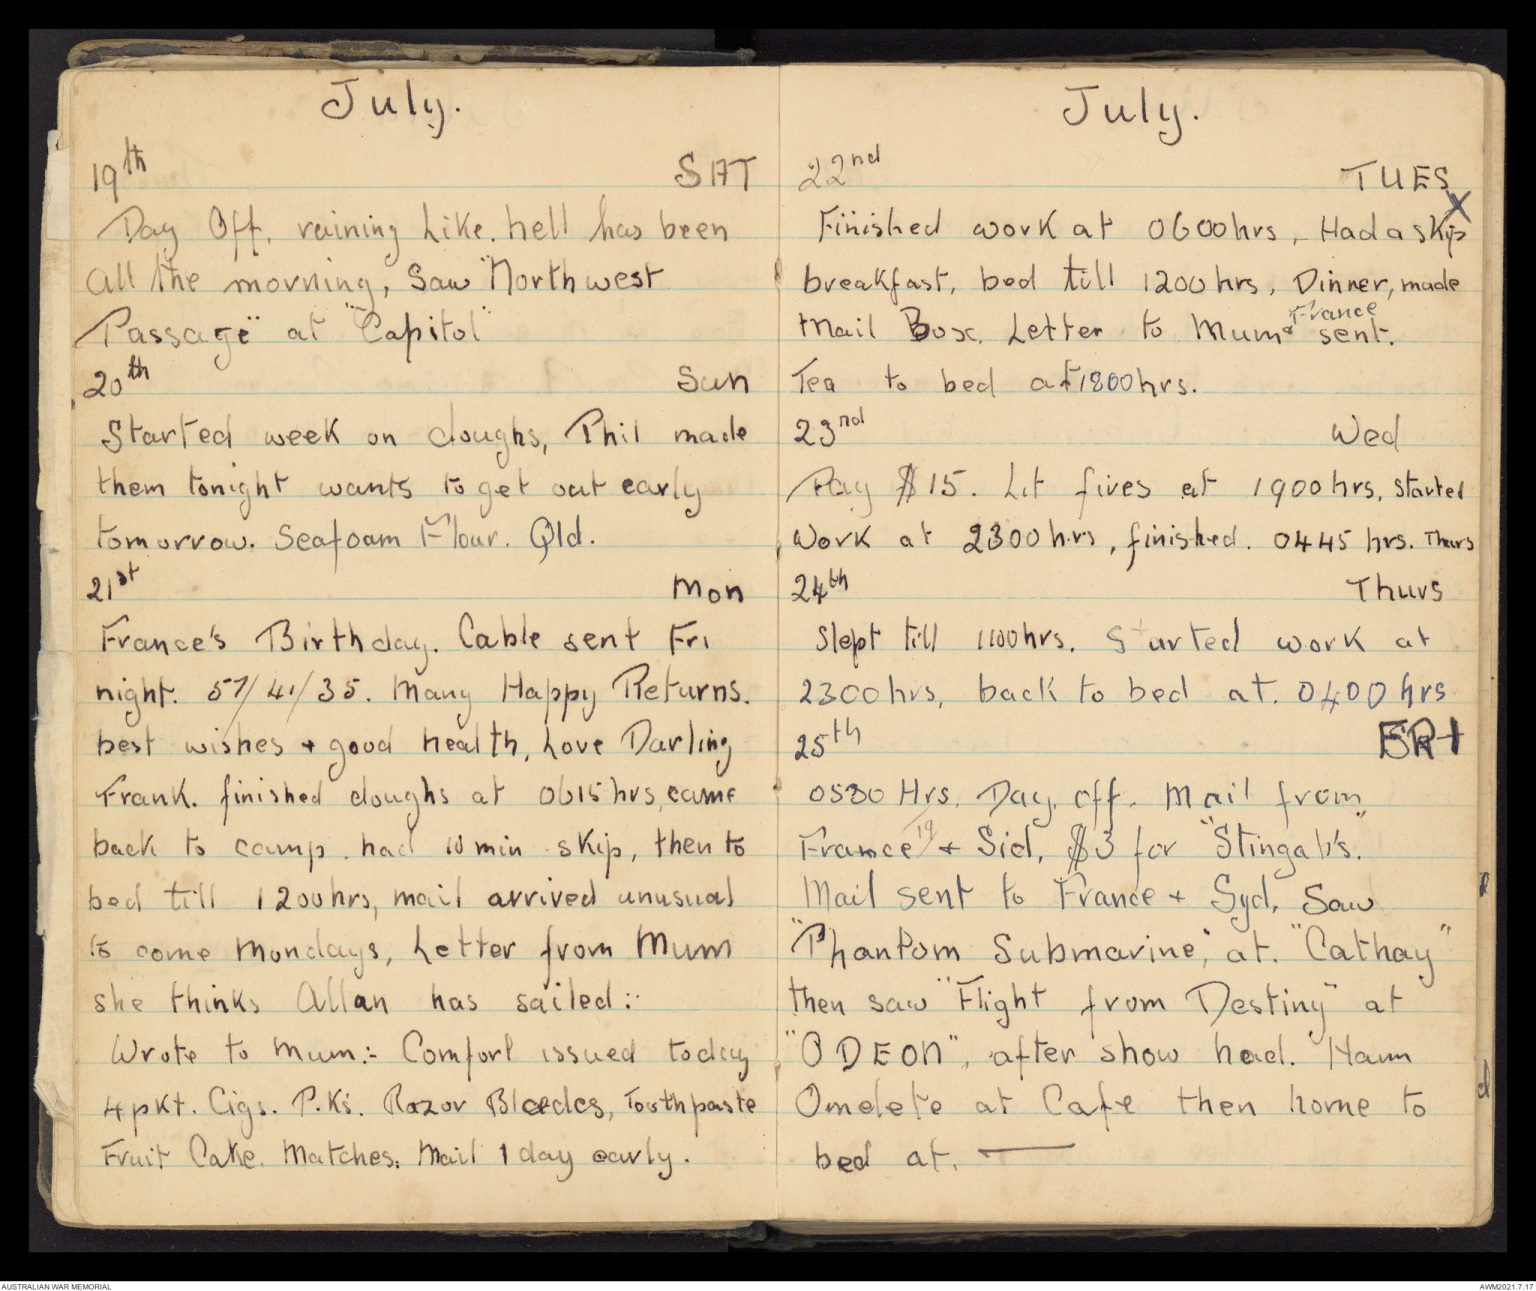 July.
19th SAT
Day Off, raining Like. hell has been
all the morning, Saw "North west
Passage" at "Capitol"
20th Sun
Started week on doughs, Phil made
them tonight wants to get out early
tomorrow. Seafoam Flour. Qld.
21st Mon
France's Birthday. Cable sent Fri
night. 57/41/35. Many Happy Returns.
best wishes + good health, Love Darling
Frank. finished doughs at 0615 hrs, came
back to camp. had 10 min skip, then to
bed till 1200hrs, mail arrived unusual
to come Mondays, Letter from Mum
she thinks Allan has sailed:-
Wrote to Mum:- Comfort issued today
4 pkt. Cigs. P.K's. Razor Blades, Toothpaste
Fruit Cake. Matches. Mail 1 day early.
July.
22nd TUES
X
Finished work at 0600hrs, Had a skip
breakfast, bed till 1200 hrs, Dinner, made
Mail Box. Letter to Mum & France sent.
Tea to bed at 1800hrs.
23rd Wed
Pay $15. Lit fires at 1900hrs, started
Work at 2300 hrs, finished. 0445 hrs. Thurs
24th Thurs
Slept till 1100hrs. Started work at
2300hrs, back to bed at. 0400 hrs
25th FRI
0530 Hrs. Day off. Mail from
France 19 + Sid, $3 for "Stingah's."
Mail sent to France + Syd. Saw
"Phantom Submarine", at. "Cathay"
then saw "Flight from Destiny" at
"ODEON", after show had. Ham
Omelete at Cafe then home to
bed at. —
AUSTRALIAN WAR MEMORIAL
AWM2021.7.17